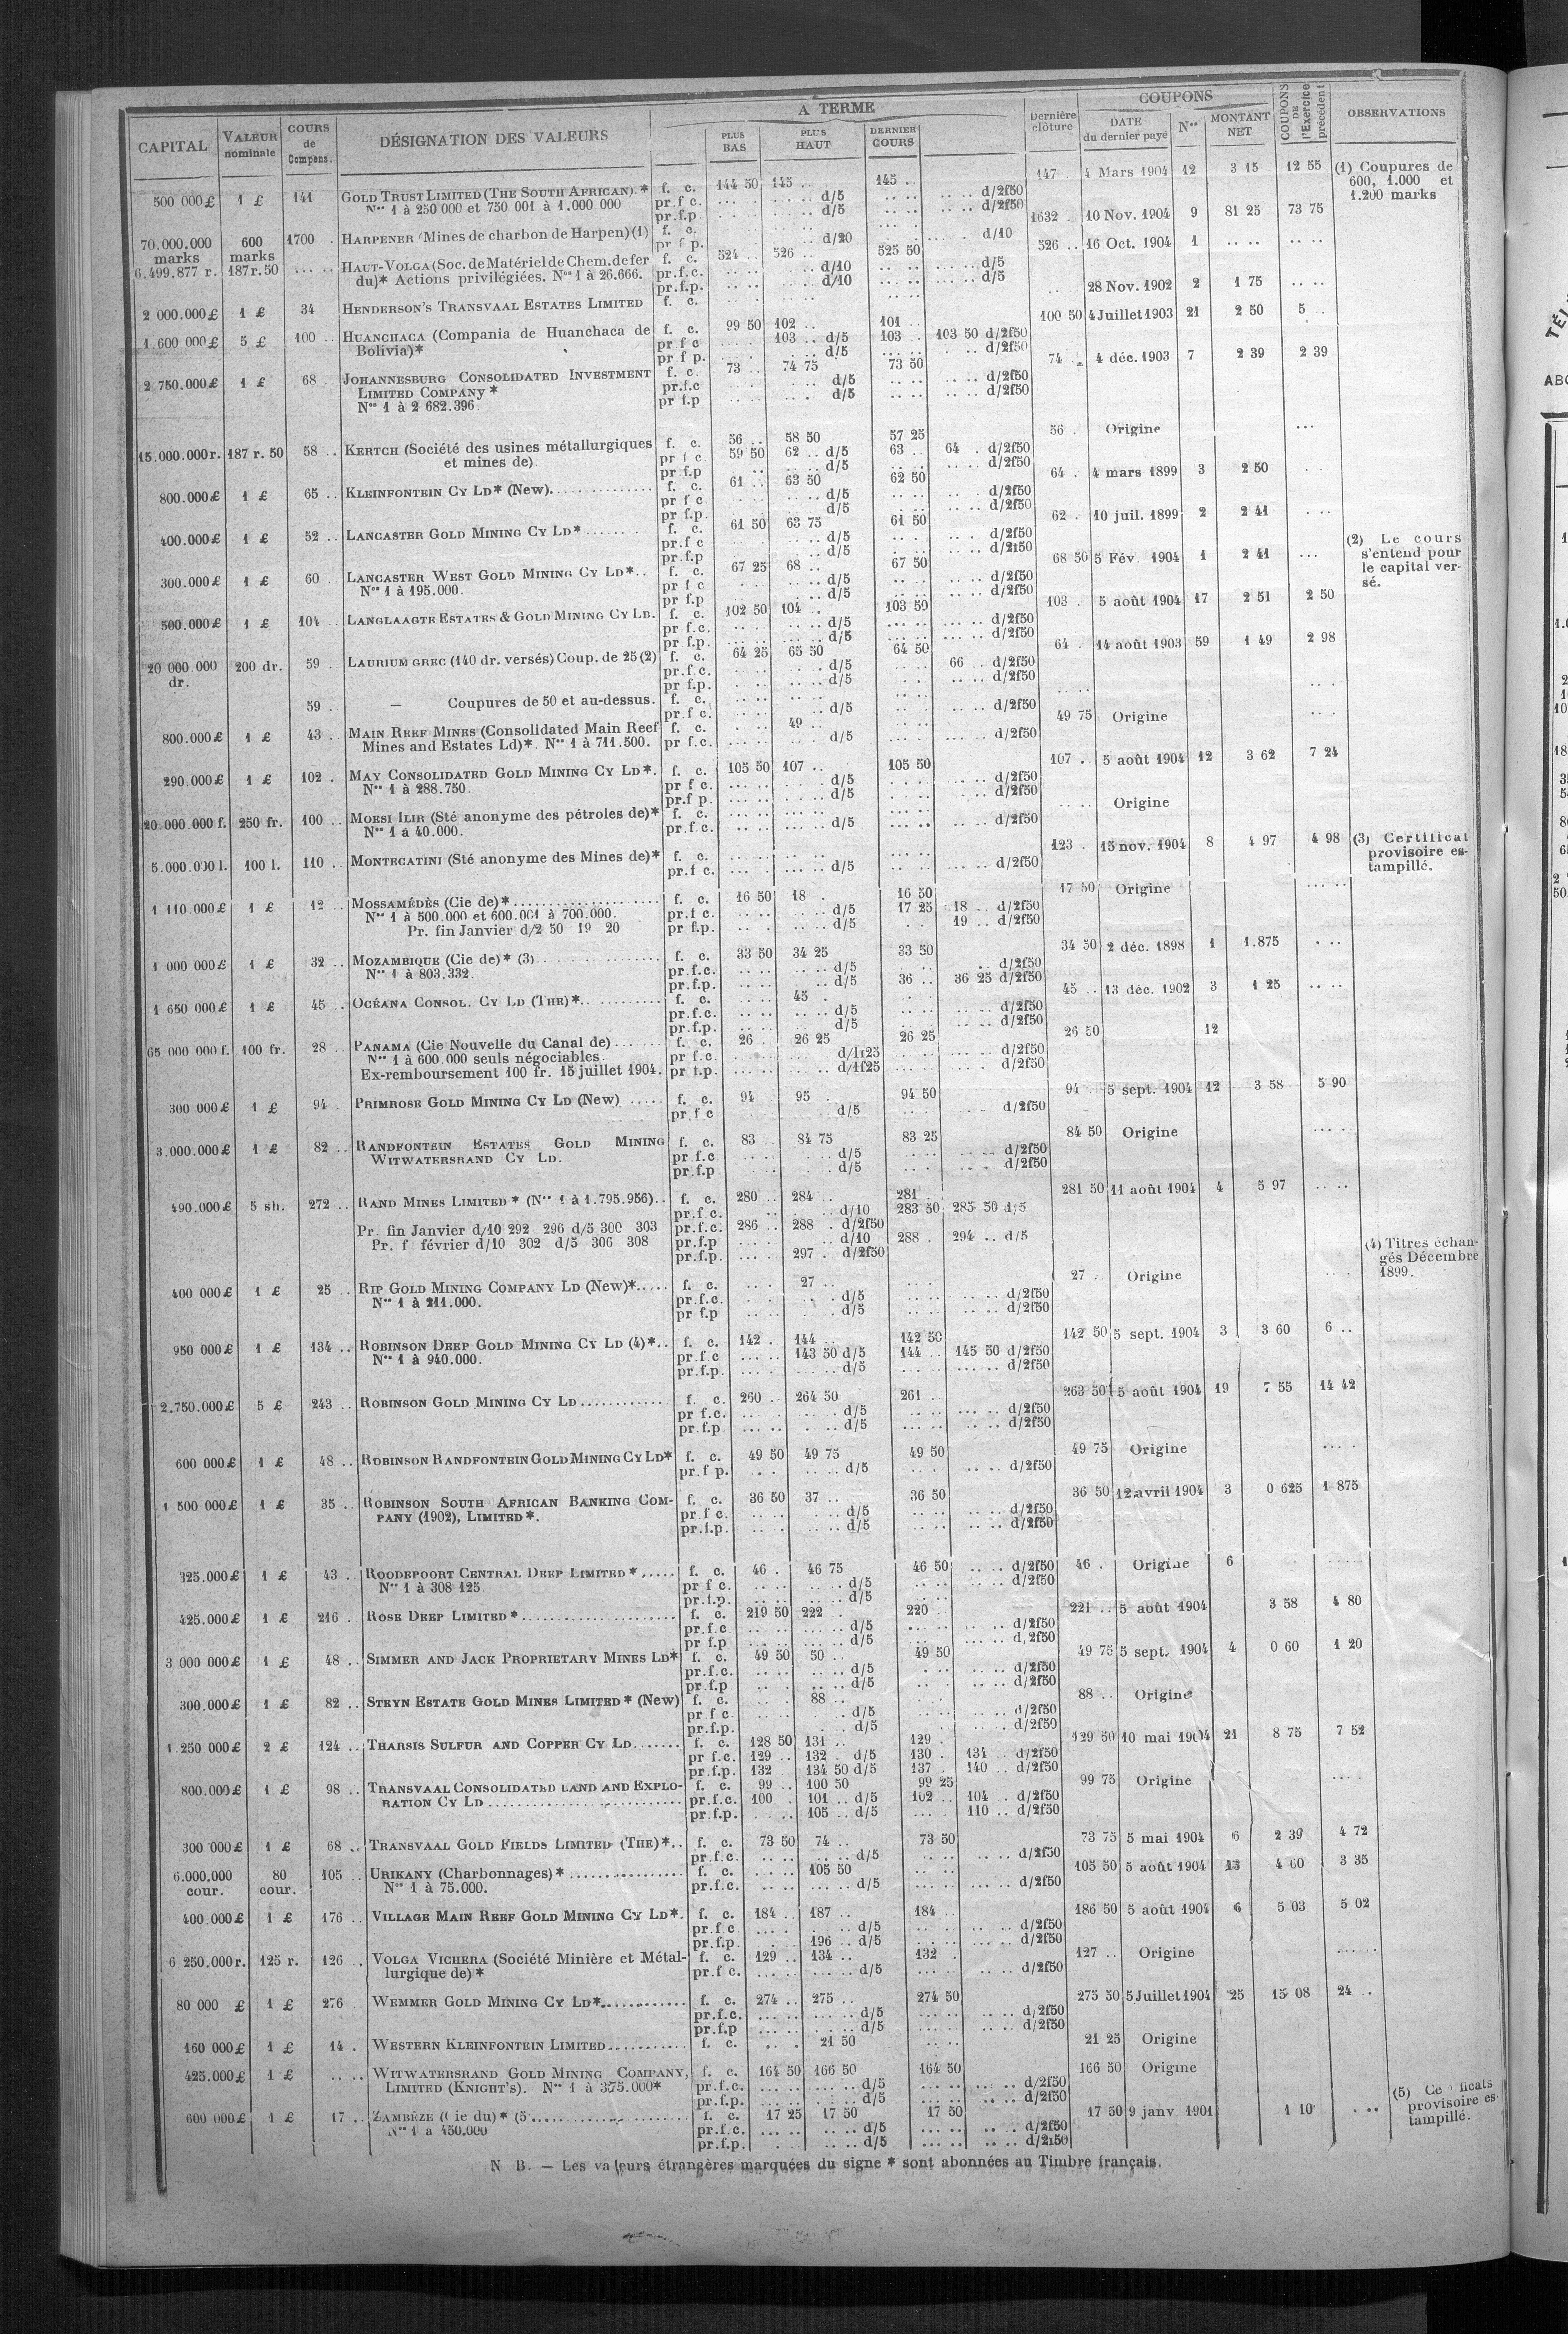 A TERME
COUPONS
CAPITAL VALEUR nominale COURS de Compens. DÉSIGNATION DES VALEURS PLUS BAS PLUS HAUT DERNIER COURS Dernière clôture DATE du dernier payé Nos MONTANT NET COUPONS DE l'Exercice précédent OBSERVATIONS
500 000 £ 1 £ 141 GOLD TRUST LIMITED (THE SOUTH AFRICAN).* f. c. 144 50 145 .. 145 .. 147 4 Mars 1904 12 3 15 12 55 (1) Coupures de
Nos 1 à 250 000 et 750 001 à 1.000 000 pr.f c. d/5 d/2f50 600, 1.000 et
pr.f.p. d/5 d/2f50 1.200 marks
70.000.000 marks 600 marks 1700 . HARPENER (Mines de charbon de Harpen) (1) f. c. 1632 . 10 Nov. 1904 9 81 25 73 75
pr f p. d/20 d/10
6.499.877 r. 187 r. 50 HAUT-VOLGA (Soc. de Matériel de Chem. de fer f. c. 524 . 526 .. 525 50 526 .. 16 Oct. 1904 1
du)* Actions privilégiées. Nos 1 à 26.666. pr.f.c. d/10 d/5
pr.f.p. d/10 d/5
2 000.000 £ 1 £ 34 HENDERSON'S TRANSVAAL ESTATES LIMITED f. c. 28 Nov. 1902 2 1 75
1.600 000 £ 5 £ 100 .. HUANCHACA (Compania de Huanchaca de f. c. 99 50 102 .. 101 .. 100 50 4 Juillet 1903 21 2 50 5 ..
Bolivia)* pr f c 103 .. d/5 103 . 103 50 d/2f50
pr f p. d/5 d/2f50
2 750.000 £ 1 £ 68 . JOHANNESBURG CONSOLIDATED INVESTMENT f. c. 73 .. 74 75 73 50 74 4 déc. 1903 7 2 39 2 39
LIMITED COMPANY * pr.f.c d/5 d/2f50
Nos 1 à 2 682.396 pr f.p d/5 d/2f50
15.000.000 r. 187 r. 50 58 .. KERTCH (Société des usines métallurgiques f. c. 56 .. 58 50 57 25 56 . Origine
et mines de) pr f c 59 50 62 .. d/5 63 .. 64 . d/2f50
pr f.p d/5 d/2f50
800.000 £ 1 £ 65 .. KLEINFONTEIN CY LD* (New) f. c. 61 .. 63 50 62 50 64 . 4 mars 1899 3 2 50
pr f c d/5 d/2f50
pr f.p. d/5 d/2f50
400.000 £ 1 £ 52 .. LANCASTER GOLD MINING CY LD* f. c. 61 50 63 75 61 50 62 . 10 juil. 1899 2 2 41
pr.f c d/5 d/2f50
pr.f.p d/5 d/2f50 (2) Le cours s'entend pour le capital versé.
300.000 £ 1 £ 60 . LANCASTER WEST GOLD MINING CY LD*.. f. c. 67 25 68 .. 67 50 68 50 5 Fév. 1904 1 2 41
Nos 1 à 195.000. pr f c d/5 d/2f50
pr f.p d/5 d/2f50
500.000 £ 1 £ 104 .. LANGLAAGTE ESTATES & GOLD MINING CY LD. f. c. 102 50 104 . 103 50 103 . 5 août 1904 17 2 51 2 50
pr f.c. d/5 d/2f50
pr f.p. d/5 d/2f50
20 000.000 dr. 200 dr. 59 . LAURIUM GREC (140 dr. versés) Coup. de 25 (2) f. c. 64 25 65 50 64 50 64 . 14 août 1903 59 1 49 2 98
pr.f.c. d/5 66 .. d/2f50
pr f.p. d/5 d/2f50
59 . — Coupures de 50 et au-dessus. f. c.
pr.f c. d/5 d/2f50
800.000 £ 1 £ 43 .. MAIN REEF MINES (Consolidated Main Reef f. c. 49 .. 49 75 Origine
Mines and Estates Ld)*. Nos 1 à 711.500. pr f.c. d/5 d/2f50
290 000 £ 1 £ 102 . MAY CONSOLIDATED GOLD MINING CY LD*. f. c. 105 50 107 .. 105 50 107 .. 5 août 1904 12 3 62 7 24
Nos 1 à 288.750. pr f c. d/5 d/2f50
pr.f p. d/5 d/2f50
20 000 000 f. 250 fr. 100 .. MOESI ILIR (Sté anonyme des pétroles de)* f. c. Origine
Nos 1 à 40.000. pr.f.c. d/5 d/2f50
5.000.000 l. 100 l. 110 .. MONTECATINI (Sté anonyme des Mines de)* f. c. 123 . 15 nov. 1904 8 4 97 4 98 (3) Certificat
pr.f c. d/5 d/2f50 provisoire estampillé.
1 110.000 £ 1 £ 12 .. MOSSAMÉDÈS (Cie de)* f. c. 16 50 18 . 16 50 17 50 Origine
Nos 1 à 500.000 et 600.001 à 700.000. pr.f c. d/5 17 25 18 .. d/2f50
Pr. fin Janvier d/2 50 19 20 pr f.p. d/5 19 .. d/2f50
1 000 000 £ 1 £ 32 .. MOZAMBIQUE (Cie de)* (3) f. c. 33 50 34 25 33 50 34 50 2 déc. 1898 1 1.875
Nos 1 à 803.332. pr.f.c. d/5 d/2f50
pr.f.p. d/5 36 .. 36 25 d/2f50
1 650 000 £ 1 £ 45 .. OCÉANA CONSOL. CY LD (THE)* f. c. 45 . 45 .. 13 déc. 1902 3 1 25
pr.f.c. d/5 d/2f50
pr.f.p. d/5 d/2f50
65 000 000 f. 100 fr. 28 .. PANAMA (Cie Nouvelle du Canal de) f. c. 26 . 26 25 26 25 26 50 12
Nos 1 à 600.000 seuls négociables. pr f.c. d/1f25 d/2f50
Ex-remboursement 100 fr. 15 juillet 1904. pr f.p. d/1f25 d/2f50
300 000 £ 1 £ 94 PRIMROSE GOLD MINING CY LD (New) f. c. 94 95 . 94 50 94 5 sept. 1904 12 3 58 5 90
pr f c d/5 d/2f50
3.000.000 £ 1 £ 82 .. RANDFONTEIN ESTATES GOLD MINING f. c. 83 .. 84 75 83 25 84 50 Origine
WITWATERSRAND CY LD. pr f.c d/5 d/2f50
pr.f.p d/5 d/2f50
490.000 £ 5 sh. 272 .. RAND MINES LIMITED * (Nos 1 à 1.795.956).. f. c. 280 .. 284 .. 281 . 281 50 11 août 1904 4 5 97
pr.f.c. d/10 283 50 285 50 d/5
Pr. fin Janvier d/10 292 296 d/5 300 303 pr.f.c. 286 .. 288 . d/2f50
Pr. f février d/10 302 d/5 306 308 pr.f.p d/10 288 . 294 .. d/5 (4) Titres échangés Décembre 1899.
pr.f.p. 297 . d/2f50
400 000 £ 1 £ 25 .. RIP GOLD MINING COMPANY LD (New)* f. c. 27 .. 27 .. Origine
Nos 1 à 211.000. pr.f.c. d/5 d/2f50
pr f.p d/5 d/2f50
950 000 £ 1 £ 134 .. ROBINSON DEEP GOLD MINING CY LD (4)*.. f. c. 142 . 144 .. 142 50 142 50 5 sept. 1904 3 3 60 6 ..
Nos 1 à 940.000. pr f c 143 50 d/5 144 .. 145 50 d/2f50
pr.f.p. d/5 d/2f50
2.750.000 £ 5 £ 243 .. ROBINSON GOLD MINING CY LD f. c. 260 .. 264 50 261 . 263 50 5 août 1904 19 7 55 14 42
pr f.c. d/5 d/2f50
pr f.p. d/5 d/2f50
600 000 £ 1 £ 48 .. ROBINSON RANDFONTEIN GOLD MINING CY LD* f. c. 49 50 49 75 49 50 49 75 Origine
pr.f p. d/5 d/2f50
1 500 000 £ 1 £ 35 .. ROBINSON SOUTH AFRICAN BANKING COM- f. c. 36 50 37 .. 36 50 36 50 12 avril 1904 3 0 625 1 875
PANY (1902), LIMITED*. pr f c. d/5 d/2f50
pr.f.p. d/5 d/2f50
325.000 £ 1 £ 43 . ROODEPOORT CENTRAL DEEP LIMITED * f. c. 46 . 46 75 46 50 d/2f50 46 . Origine 6
Nos 1 à 308 125 pr f c. d/5 d/2f50
pr.f.p. d/5
425.000 £ 1 £ 216 . ROSE DEEP LIMITED * f. c. 219 50 222 . 220 . 221 .. 5 août 1904 3 58 4 80
pr.f.c d/5 d/2f50
pr f.p d/5 d/2f50
3 000 000 £ 1 £ 48 .. SIMMER AND JACK PROPRIETARY MINES LD* f. c. 49 50 50 .. 49 50 49 75 5 sept. 1904 4 0 60 1 20
pr.f.c. d/5 d/2f50
pr.f.p d/5 d/2f50
300.000 £ 1 £ 82 .. STEYN ESTATE GOLD MINES LIMITED * (New) f. c. 88 .. 88 .. Origine
pr f c. d/5 d/2f50
pr.f.p. d/5 d/2f50
1.250 000 £ 2 £ 124 .. THARSIS SULFUR AND COPPER CY LD f. c. 128 50 131 .. 129 . 129 50 10 mai 1904 21 8 75 7 52
pr f.c. 129 .. 132 . d/5 130 . 134 .. d/2f50
pr.f.p. 132 134 50 d/5 137 . 140 .. d/2f50
800.000 £ 1 £ 98 .. TRANSVAAL CONSOLIDATED LAND AND EXPLO- f. c. 99 .. 100 50 99 25 99 75 Origine
RATION CY LD pr.f.c. 100 . 101 .. d/5 102 .. 104 . d/2f50
pr.f.p. 105 .. d/5 110 .. d/2f50
300 000 £ 1 £ 68 .. TRANSVAAL GOLD FIELDS LIMITED (THE)*.. f. c. 73 50 74 .. 73 50 73 75 5 mai 1904 6 2 39 4 72
pr.f.c. d/5 d/2f50
6.000.000 cour. 80 cour. 105 .. URIKANY (Charbonnages)* f. c. 105 50 105 50 5 août 1904 13 4 60 3 35
Nos 1 à 75.000. pr.f.c. d/5 d/2f50
400.000 £ 1 £ 176 .. VILLAGE MAIN REEF GOLD MINING CY LD*. f. c. 184 .. 187 .. 184 .. 186 50 5 août 1904 6 5 03 5 02
pr.f c d/5 d/2f50
pr.f.p. 196 .. d/5 d/2f50
6 250.000 r. 125 r. 126 .. VOLGA VICHERA (Société Minière et Métal- f. c. 129 .. 134 .. 132 . 127 .. Origine
lurgique de)* pr.f c. d/5 d/2f50
80 000 £ 1 £ 276 . WEMMER GOLD MINING CY LD* f. c. 274 .. 275 .. 274 50 275 50 5 Juillet 1904 25 15 08 24 ..
pr.f.c. d/5 d/2f50
pr.f.p d/5 d/2f50
160 000 £ 1 £ 14 . WESTERN KLEINFONTEIN LIMITED f. c. 21 50 21 25 Origine
425.000 £ 1 £ WITWATERSRAND GOLD MINING COMPANY, f. c. 164 50 166 50 164 50 166 50 Origine
LIMITED (KNIGHT'S). Nos 1 à 375.000* pr.f.c. d/5 d/2f50
pr.f.p. d/5 d/2f50 (5)
600 000 £ 1 £ 17 .. ZAMBÈZE (Cie du)* (5 f. c. 17 25 17 50 17 50 17 50 9 janv 1901 1 10 provisoire es-
Nos 1 à 450.000 pr.f.c. d/5 d/2f50 tampillé.
pr.f.p. d/5 d/2f50
N B. — Les valeurs étrangères marquées du signe * sont abonnées au Timbre français.